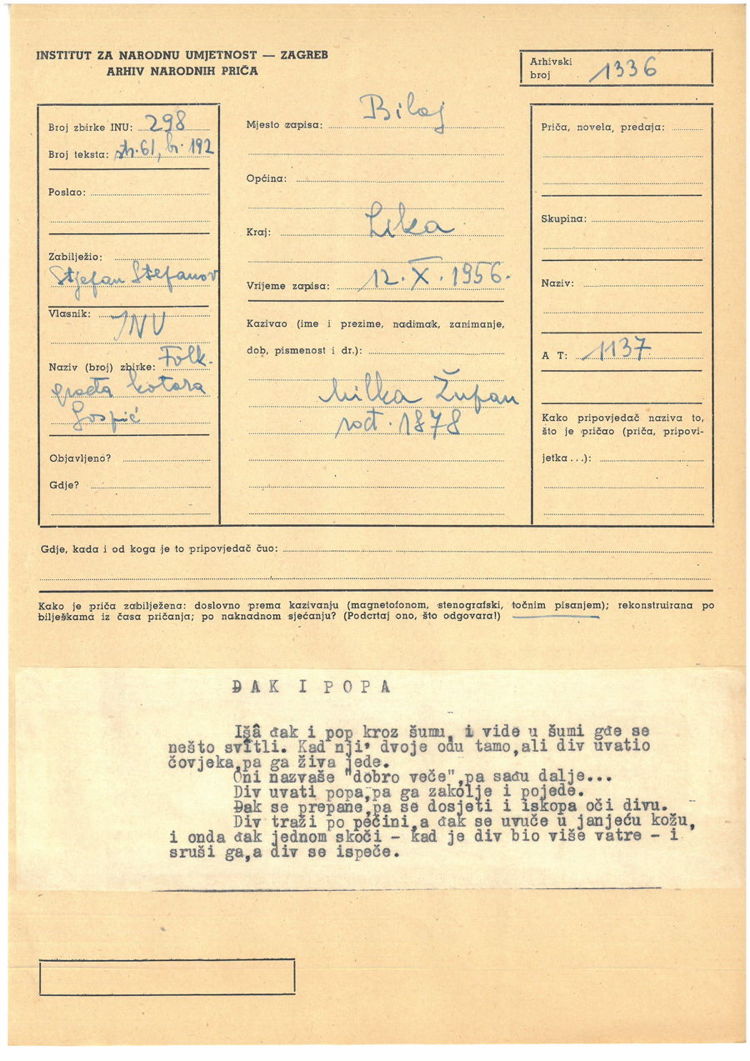 INSTITUT ZA NARODNU UMJETNOST — ZAGREB
ARHIV NARODNIH PRIČA
Arhivski
broj 1336
Broj zbirke INU: 298
Broj teksta: str. 61, br. 192
Poslao:
Zabilježio:
Stjepan Stepanov
Vlasnik: INU
Naziv (broj) zbirke: Folk.
građa kotara
Gospić
Objavljeno?
Gdje?
Mjesto zapisa: Bilaj
Općina:
Kraj: Lika
Vrijeme zapisa: 12. X. 1956.
Kazivao (ime i prezime, nadimak, zanimanje,
dob, pismenost i dr.):
Milka Župan
rođ. 1878
Priča, novela, predaja:
Skupina:
Naziv:
A T: 1137
Kako pripovjedač naziva to,
što je pričao (priča, pripovi-
jetka . . .):
Gdje, kada i od koga je to pripovjedač čuo:
Kako je priča zabilježena: doslovno prema kazivanju (magnetofonom, stenografski, točnim pisanjem); rekonstruirana po
bilješkama iz časa pričanja; po naknadnom sjećanju? (Podcrtaj ono, što odgovara!)
ĐAK I POPA
Išâ đak i pop kroz šumu, i vide u šumi gde se
nešto svitli. Kad nji' dvoje odu tamo,ali div uvatio
čovjeka,pa ga živa jede.
Oni nazvaše "dobro veče",pa sađu dalje...
Div uvati popa,pa ga zakolje i pojede.
Đak se prepane,pa se dosjeti i iskopa oči divu.
Div traži po pećini,a đak se uvuče u janjeću kožu,
i onda đak jednom skoči - kad je div bio više vatre - i
sruši ga,a div se ispeče.